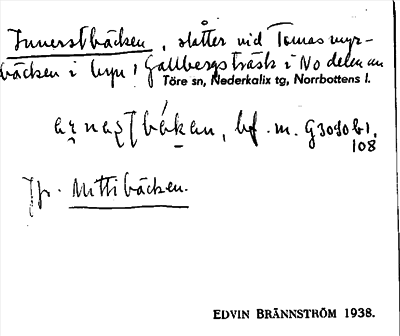 Innerstbäcken, slåtter vid Tomasmyr-
bäcken i byn, Gallbergsträsk i No delen av
Töre sn, Nederkalix tg, Norrbottens l.
bf. m. G3090 b1,
108
Jfr. Mittibäcken.
EDVIN BRÄNNSTRÖM 1938.